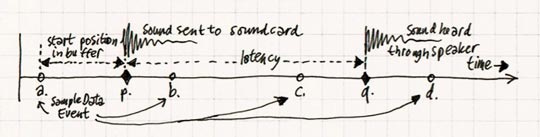 start position
in buffer
sound sent to soundcard
latency
Sound heard
through speaker
time
a.
p.
b.
c.
q.
d.
SampleData
Event